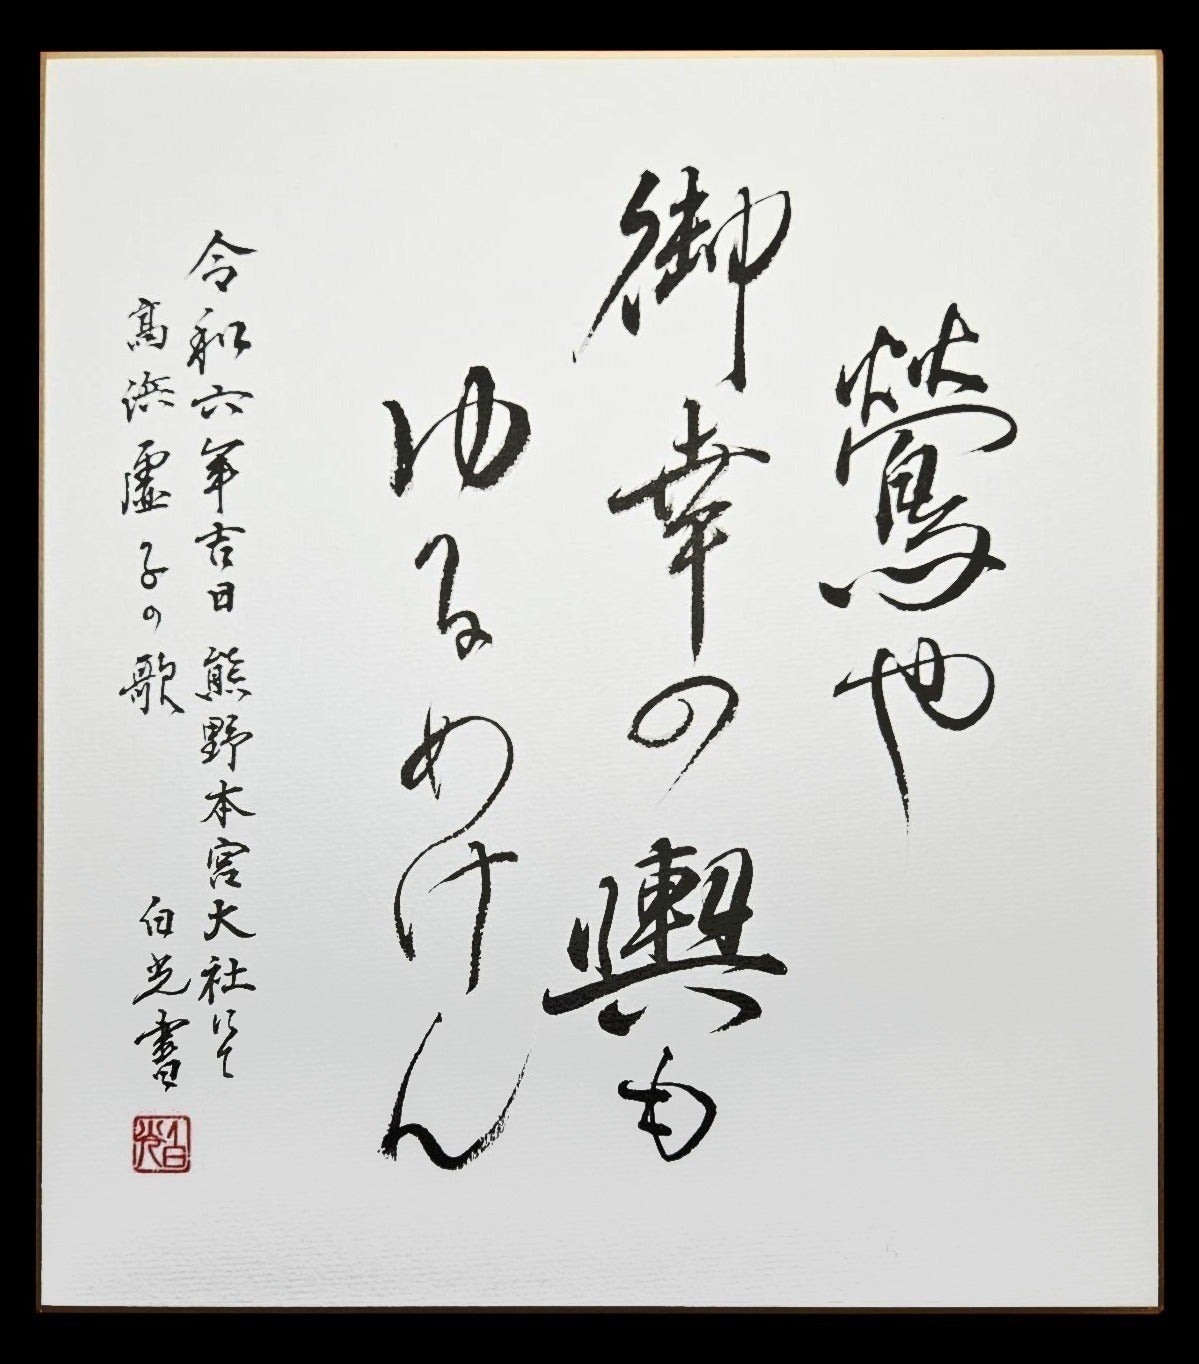 鶯や
御幸の輿も
ゆるめけん
令和六年吉日 熊野本宮大社にて
高浜虚子の歌 白光書
白光